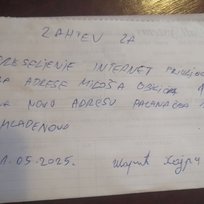 ZAHTEV ZA
PRESELJENJE INTERNET PRIKLJUČ
SA ADRESE MILOŠA OBILIĆA 1
NA NOVU ADRESU PALANAČKA
MLADENOVO
1.05.2025.